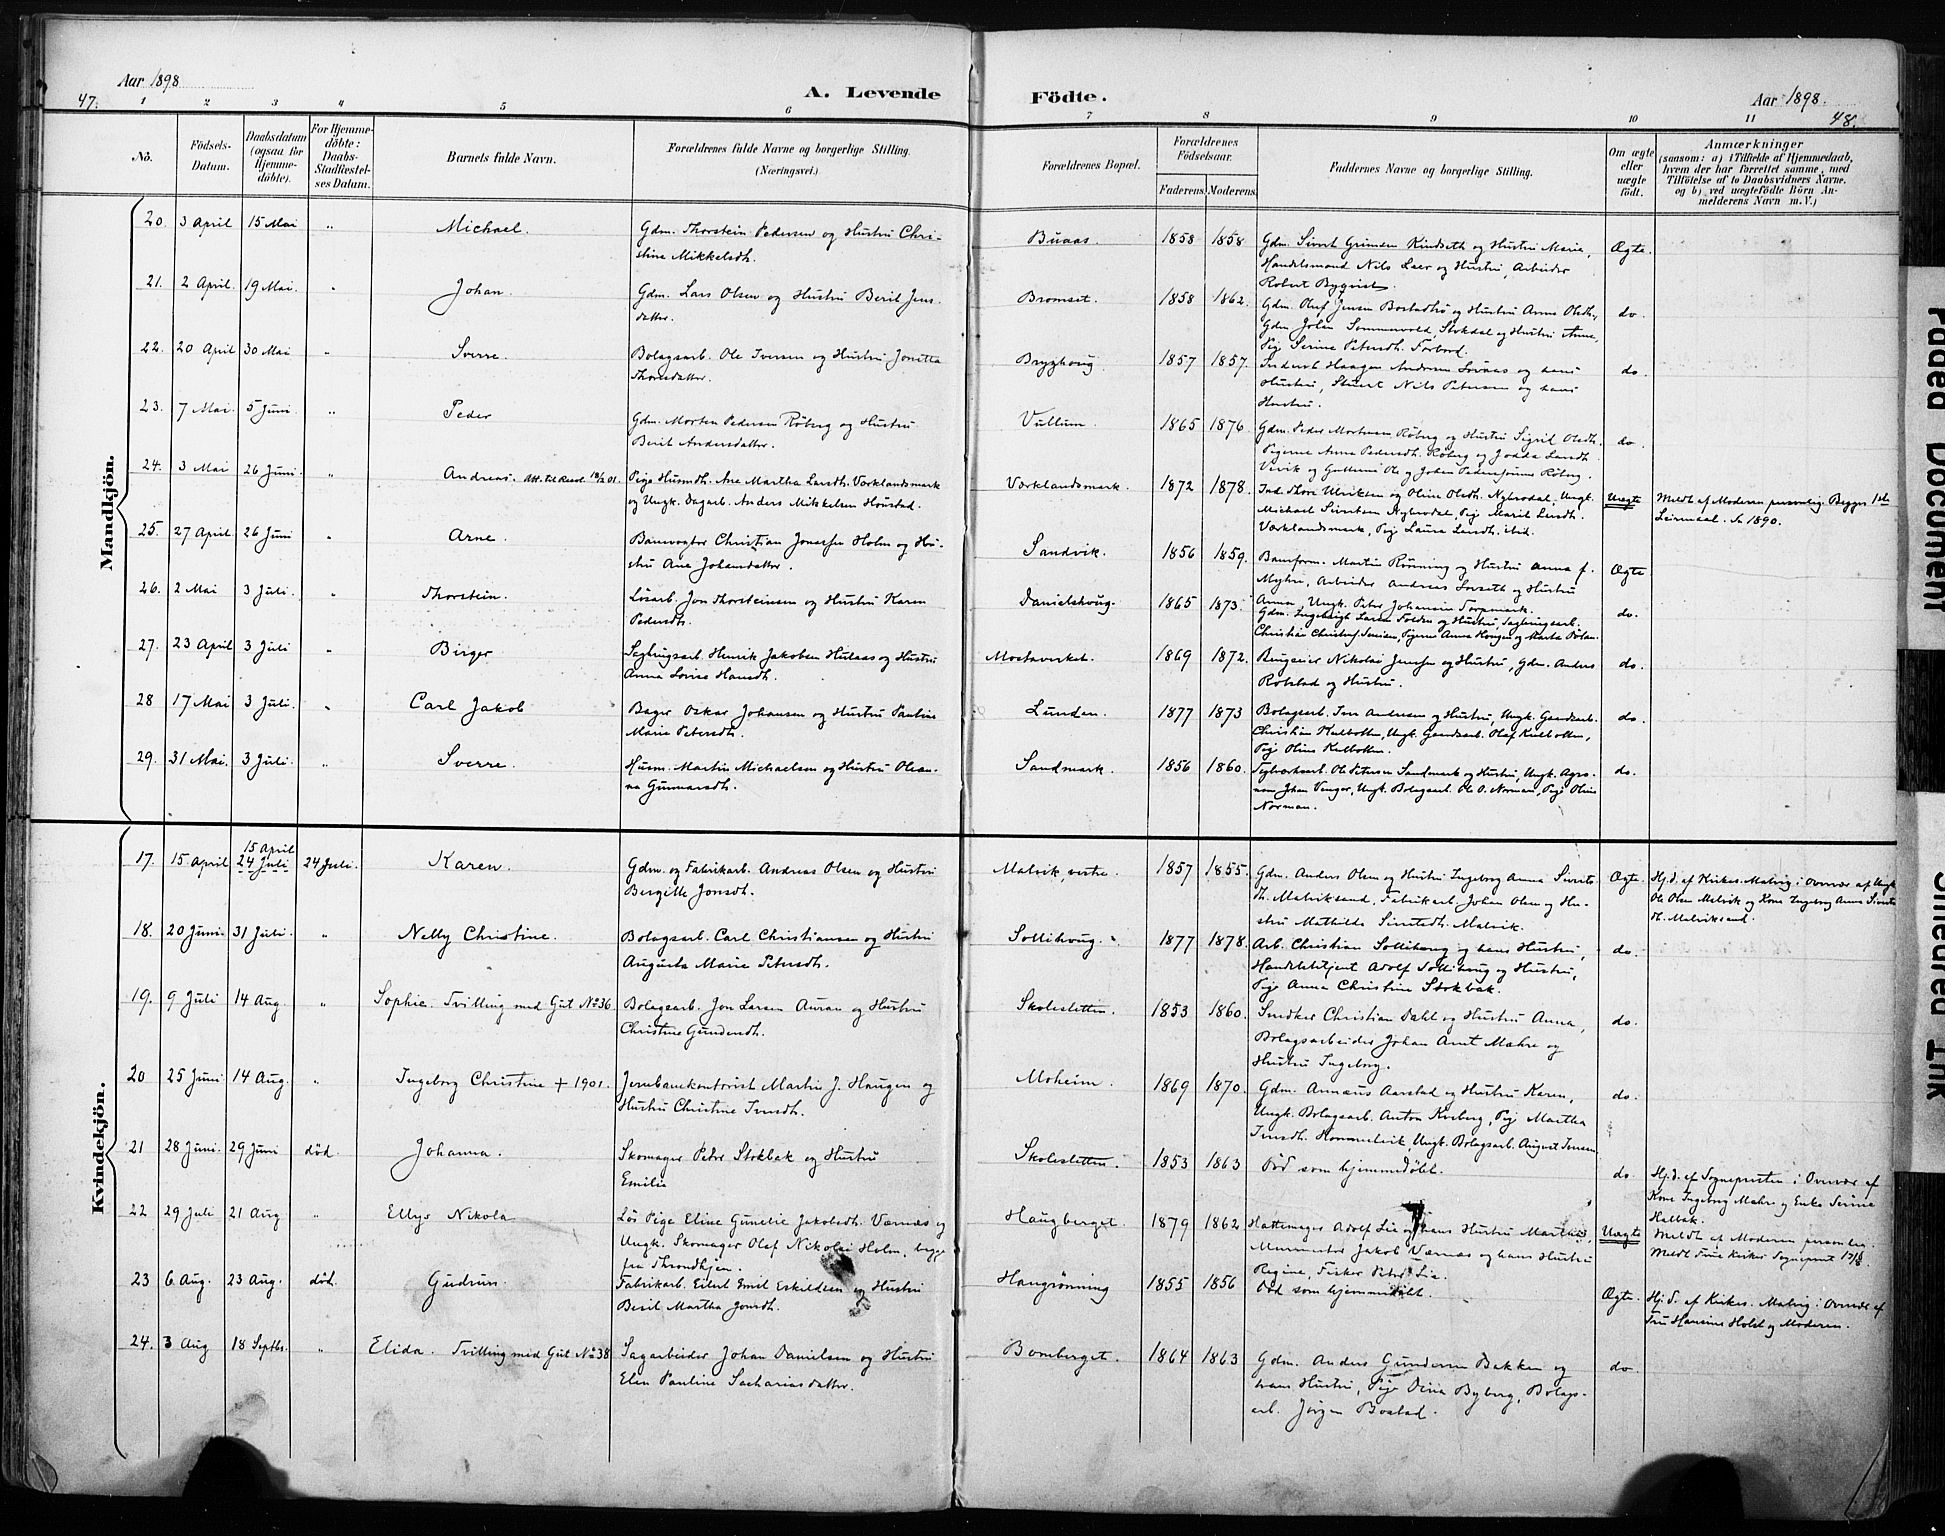 Aar 1898
47.
A. Levende Födte.
Aar 1898.
48.
1 2 3 4 5 6 7 8 9 10 11
No.
Födsels-Datum.
Daabsdatum (ogsaa for Hjemmedöbte).
For Hjemmedöbte: Daabs-Stadfæstelses Datum.
Barnets fulde Navn.
Forældrenes fulde Navne og borgerlige Stilling. (Næringsvei.)
Forældrenes Bopæl.
Forældrenes Födselsaar.
Faderens. Moderens.
Faddernes Navne og borgerlige Stilling.
Om ægte eller uægte födt.
Anmærkninger
(saasom: a) i Tilfælde af Hjemmedaab,
hvem der har forrettet samme, med
Tilföielse af to Daabsvidners Navne,
og b) ved uægtefödte Börn An-
melderens Navn m. V.)
Mandkjön.
20. 3 April 15 Mai " Michael. Gdm. Thorstein Pedersen og Hustru Chri-
stine Mikkelsdt. Buaas. 1858 1858 Gdm. Sivert Grimsen Kindseth og Hustru Marie,
Handelsmand Nils Laer og Hustru, Arbeider
Robert Bygvist. Ægte.
21. 2 April. 19 Mai. " Johan. Gdm. Lars Olsen og Hustru Berit Jens-
datter. Bromset. 1858 1862. Gdm. Oluf Jensen og Hustru Anne Olsdt.,
Gdm. Johan Stokdal og Hustru Anne,
Pige Serine Petersdt. Forbord. do.
22. 20 April 30 Mai " Sverre. Bolagsarb. Ole Iversen og Hustru Jonetta
Thomsdatter. Brygghoug. 1857 1857. Haagen Andersen og hans
Hustru, Nils Petersen og hans
Hustru. do.
23. 7 Mai. 5 Juni. " Peder Gdm. Morten Pedersen Röberg og Hustru
Berit Andersdatter. Vullum. 1865 1876. Gdm. Peder Mortensen Röberg og Hustru Sigrid Olsdt.
Pigerne Anne Pedersdt. Röberg og
Vivik og Ole og Johan Röberg. do.
24. 3 Mai 26 Juni. " Andreas. Att. til 19/2 01. Pige Husmdt. Ane Martha Larsdt. Værklandsmark
og Ungk. Dagarb. Anders Mikkelsen Houstad. Værklandsmark. 1872 1878. Ind. Thore Ulriksen og Oline Olsdt. Nylvedal, Ungk.
Michael Sivertsen Nylvedal, Pige Marit Larsdt.
Værklandsmark, Pige Laura Larsdt. ibid. Uægte Meldt af Moderen personlig. Begges 1ste
Leiermaal. No 1890.
25. 27 April 26 Juni " Arne. Banevogter Christian Jonassen Holm og Hu-
stru Ane Johansdatter. Sandvik. 1856 1859. Baneform. Martin Rönning og Hustru Anna f.
Myhre, Arbeider Andreas og Hustru
Anna, Ungk. Peter Johansen Torpmark. Ægte
26. 2 Mai 3 Juli. " Thorstein. Lösarb. Jon Thorsteinsen og Hustru Karen
Pedersdt. Danielshoug. 1865 1873. Gdm. Larsen Folden og Hustru, Sagbrugsarb.
Christian Iversen, Pigerne Anna Hougen og Marta do.
27. 23 April 3 Juli " Birger Sagbrugsarb. Henrik Jakobsen Hulaas og Hustru
Anna Lovise Hansdt. Mostaverket. 1869 1872. Brugseier Nikolai Jenssen og Hustru, Gdm. Anders
Rotstad og Hustru. do.
28 17 Mai 3 Juli. " Carl Jakob Bager Oskar Johansen og Hustru Pauline
Marie Petersdt. Lunden. 1877 1873 Bolagsarb. Iver Andersen og Hustru, Ungk. Gaardsarb.
Christian Kulbotten, Ungk. Gaardsarb. Olaf Kulbotten,
Pige Oline Kulbotten. do.
29. 31 Mai. 3 Juli. " Sverre. Husm. Martin Michaelsen og Hustru Olean-
na Gunnarsdt. Sandmark. 1856 1860. Teglverksarb. Ole Petersen Sandmark og Hustru, Ungk. Agro-
nom Johan Venger, Ungk. Bolagsarb. Ole O. Norman, Pige Oline
Norman. do.
Kvindekjön.
17. 15 April 15 April
24 Juli 24 Juli. Karen. Gdm. og Fabrikarb. Andreas Olsen og Hustru
Bergitte Jonsdt. Malvik, vestre. 1857 1855. Gdm. Anders Olsen og Hustru Ingeborg Anna Siverts-
dt. Malviksand, Fabrikarb. Johan Olsen og Hu-
stru Mathilde Sivertsdt. Malvik. Ægte. Hj.d. af Kirkes. Malvig i Overvær af Ungk.
Ole Olsen Malvik og Kone Ingeborg Anna Siverts-
dt. Malviksand.
18. 20 Juni 31 Juli. " Nelly Christine. Bolagsarb. Carl Christiansen og Hustru
Augusta Marie Petersdt. Sollihoug. 1877 1878. Arb. Christian Sollihoug og hans Hustru,
Handelsbetjent Adolf Sollihoug og Hustru,
Pige Anna Christine Stokbak. do.
19. 9 Juli 14 Aug. " Sophie. Tvilling med Gut No 36 Bolagsarb. Jon Larsen Auran og Hustru
Christine Gundersdt. Skolesletten. 1853 1860. Snedker Christian Dahl og Hustru Anna,
Bolagsarbeider Johan Arnt Mæhre og
Hustru Ingeborg. do.
20 25 Juni 14 Aug. " Ingeborg Christine + 1901. Jernbanekontorist Martin J. Haugen og
Hustru Christine Iversdt. Moheim. 1869 1870. Gdm. Annæus Aarstad og Hustru Karen,
Ungk. Bolagsarb. Anton Kveberg, Pige Martha
Iversdt. Hommelvik, Ungk. Bolagsarb. August Jensen do.
21 28 Juni 29 Juni död. Johanna. Skomager Peter Stokbak og Hustru
Emilie Skolesletten. 1853 1863 Död som hjemmedöbt. do. Hj.d. af Sognepresten i Overvær af
Kone Ingeborg Mæhre og Enke Serine
Halbak.
22 29 Juli 21 Aug " Ellys Nikola Lös Pige Eline Gunelie Jakobsdt. Værnæs og
Ungk. Skomager Olaf Nikolai Holm, begge
fra Throndhjem. Haugberget. 1879 1862 Hattemager Adolf Lie og hans Hustru Marthea,
Murmester Jakob Værnæs og hans Hustru
Regine, Fisker Peter Lie. Uægte Meldt af Moderen personlig.
Meldt Sogneprest
23 6 Aug. 23 Aug. död. Gudrun. Fabrikarb. Eilert Emil Eskildsen og Hustru
Berit Martha Jonsdt. Haugrönning 1855 1856 Död som hjemmedöbt. Ægte. Hj.d. af Kirkes. Malvig i Overvær af
Fru Hansine Holst og Moderen.
24. 3 Aug 18 Septbr. " Elida. Tvilling med Gut No 38 Sagarbeider Johan Danielsen og Hustru
Elen Pauline Sachariasdatter. Bomberget. 1864 1863 Gdm. Anders Gundersen Bakken og
hans Hustru, Pige Olina Byberg, Bolags-
arb. Jörgen Bostad. do.
Faded Document
Smeared Ink